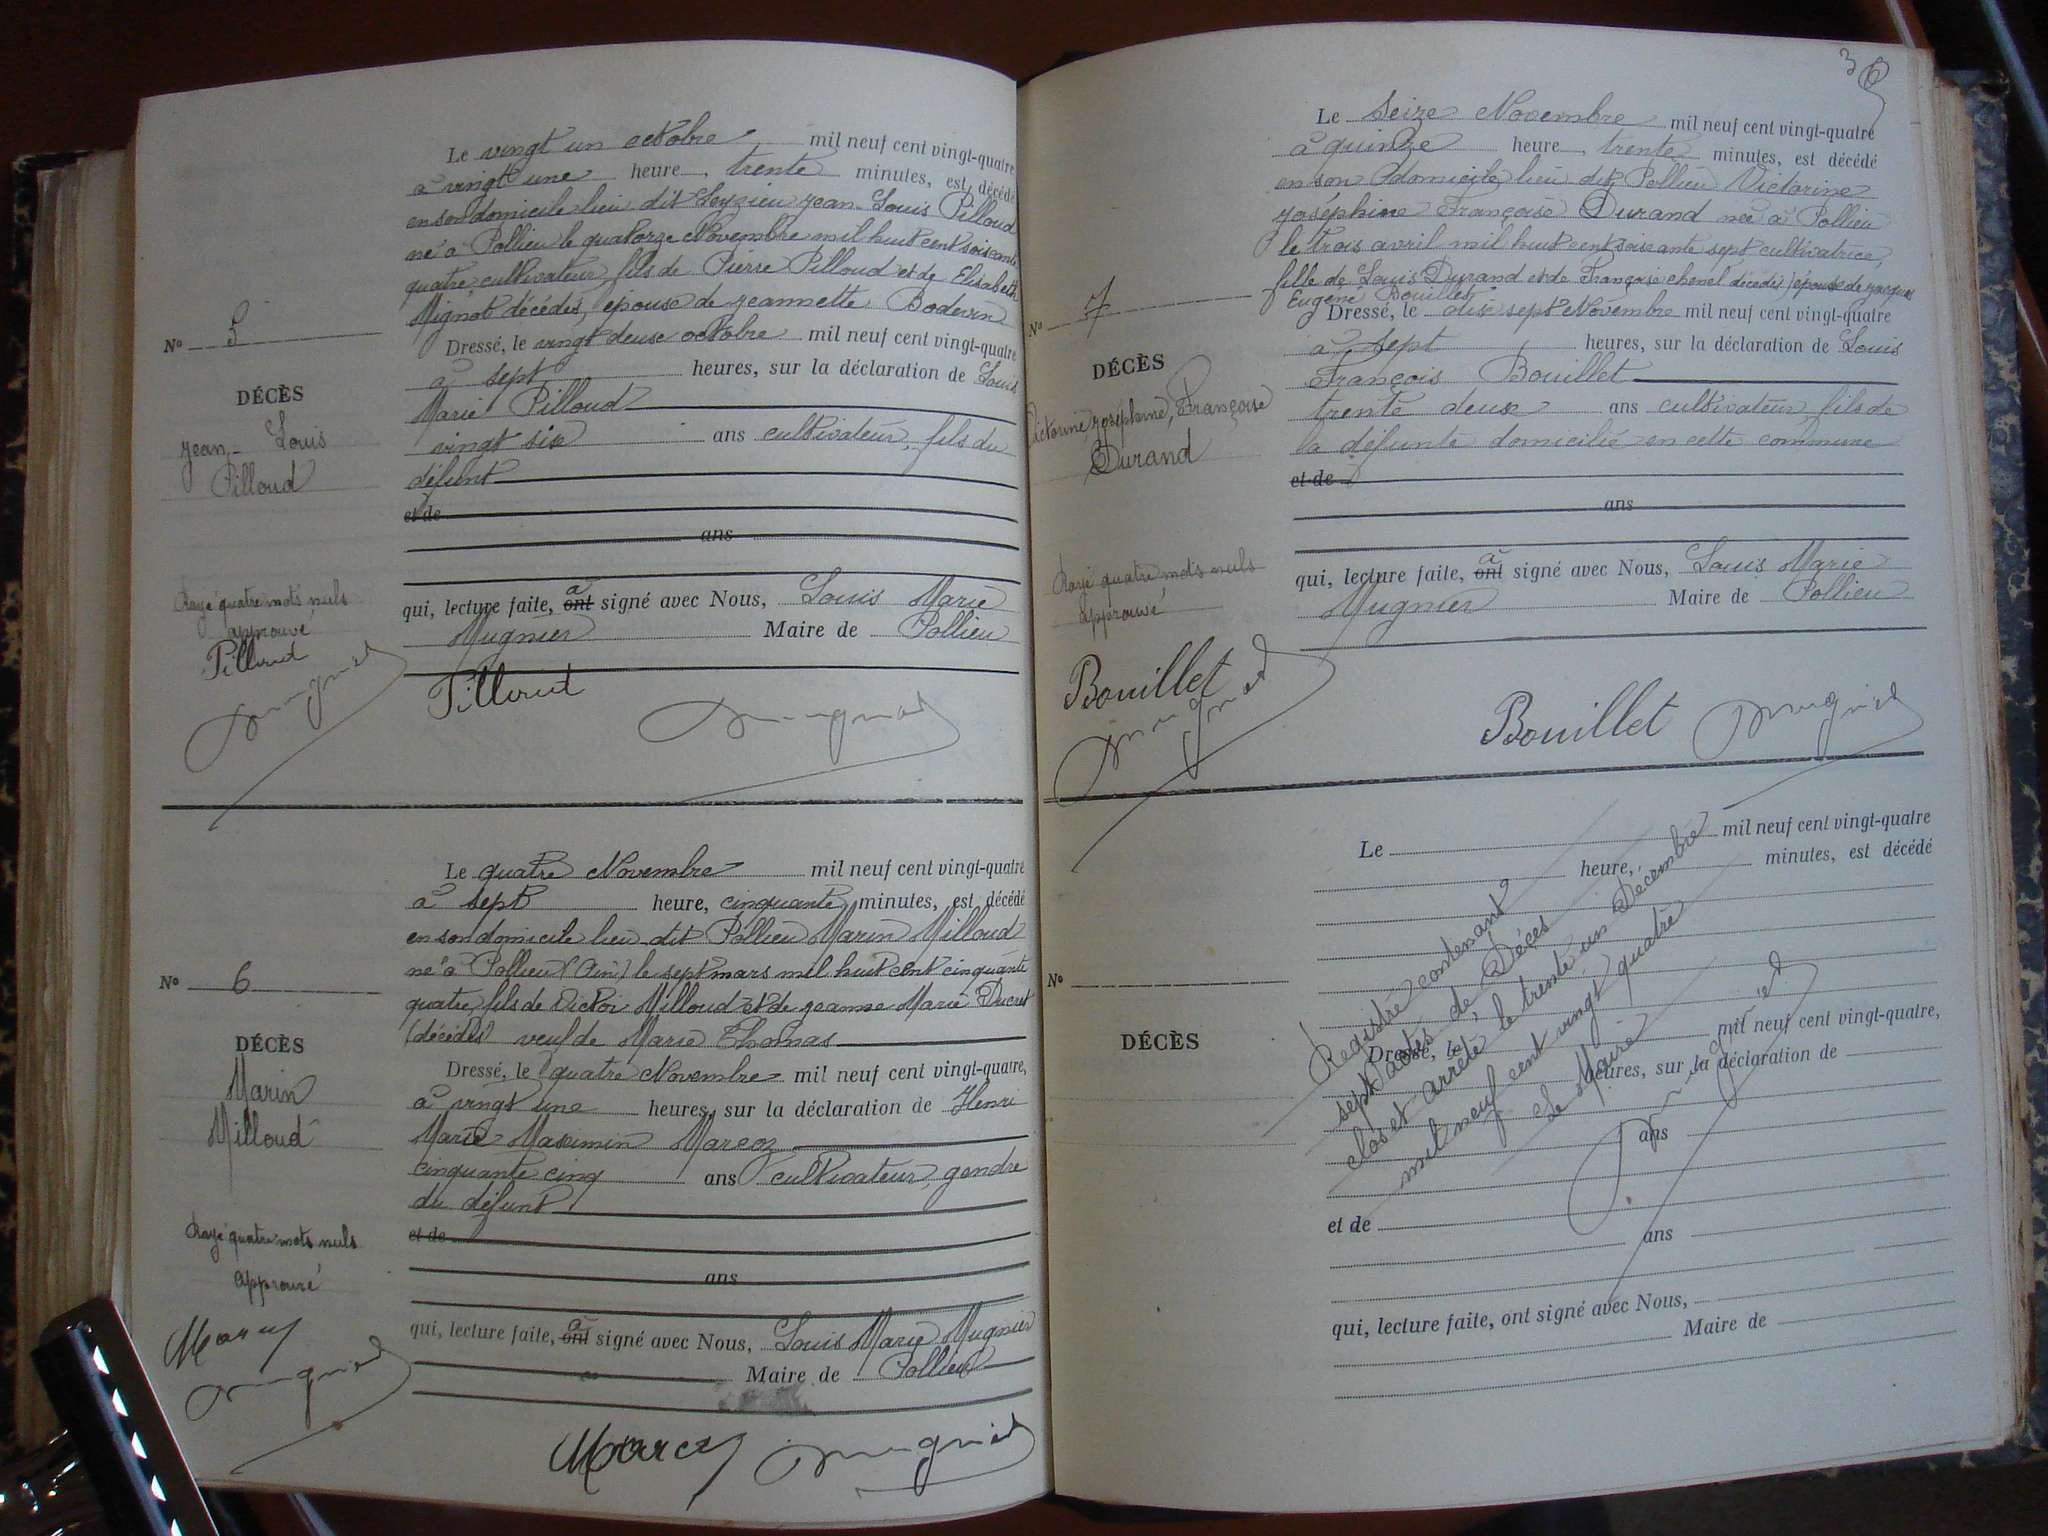 Le vingt un octobre mil neuf cent vingt-quatre
à vingt une heure, trente minutes, est décédé
en son domicile lieu dit Leyzieu Jean-Louis Pilloud
né à Pollieu le quatorze Novembre mil huit cent soixante
quatre, cultivateur, fils de Pierre Pilloud et de Elisabeth
Mignot décédés, épouse de Jeannette Bodevin
Dressé, le vingt deux octobre mil neuf cent vingt-quatre
à sept heures, sur la déclaration de Louis
Marie Pilloud
vingt six ans cultivateur, fils du
défunt
et de
ans
qui, lecture faite, ont a signé avec Nous, Louis Marie
Mugnier Maire de Pollieu
Nº 5
DÉCÈS
Jean-Louis
Pilloud
Rayé quatre mots nuls
approuvé
Pilloud
Mugnier
Pilloud Mugnier
Le quatre Novembre mil neuf cent vingt-quatre
à sept heure, cinquante minutes, est décédé
en son domicile lieu dit Pollieu Marin Milloud
né à Pollieu (Ain) le sept mars mil huit cent cinquante
quatre, fils de Victor Milloud et de Jeanne Marie Ducret
(décédés) veuf de Marie Thomas
Dressé, le quatre Novembre mil neuf cent vingt-quatre,
à vingt une heures, sur la déclaration de Henri
Marie Maximin Marcoz
cinquante cinq ans cultivateur, gendre
du défunt
et de
ans
qui, lecture faite, ont a signé avec Nous, Louis Marie Mugnier
Maire de Pollieu
Nº 6
DÉCÈS
Marin
Milloud
Rayé quatre mots nuls
approuvé
Marcoz
Mugnier
Marcoz Mugnier
36
Le seize Novembre mil neuf cent vingt-quatre
à quinze heure, trente minutes, est décédé
en son domicile lieu dit Pollieu Victorine
Joséphine Françoise Durand née à Pollieu
le trois avril mil huit cent soixante sept, cultivatrice,
fille de Louis Durand et de Françoise chenel décédés) épouse de Jacques
Eugène Bouillet
Dressé, le dix sept Novembre mil neuf cent vingt-quatre
à sept heures, sur la déclaration de Louis
François Bouillet
trente deux ans cultivateur, fils de
la défunte domicilié en cette commune
et de
ans
qui, lecture faite, ont a signé avec Nous, Louis Marie
Mugnier Maire de Pollieu
Nº 7
DÉCÈS
Victorine, Joséphine, Françoise
Durand
Rayé quatre mots nuls
approuvé
Bouillet
Mugnier
Bouillet Mugnier
Le mil neuf cent vingt-quatre
heure, minutes, est décédé
Nº
DÉCÈS
Dressé, le mil neuf cent vingt-quatre,
heures, sur la déclaration de
ans
et de
ans
qui, lecture faite, ont signé avec Nous,
Maire de
Registre contenant
sept actes de Décès
clos et arrêté le trente un Décembre
mil neuf cent vingt quatre
Le Maire
Mugnier